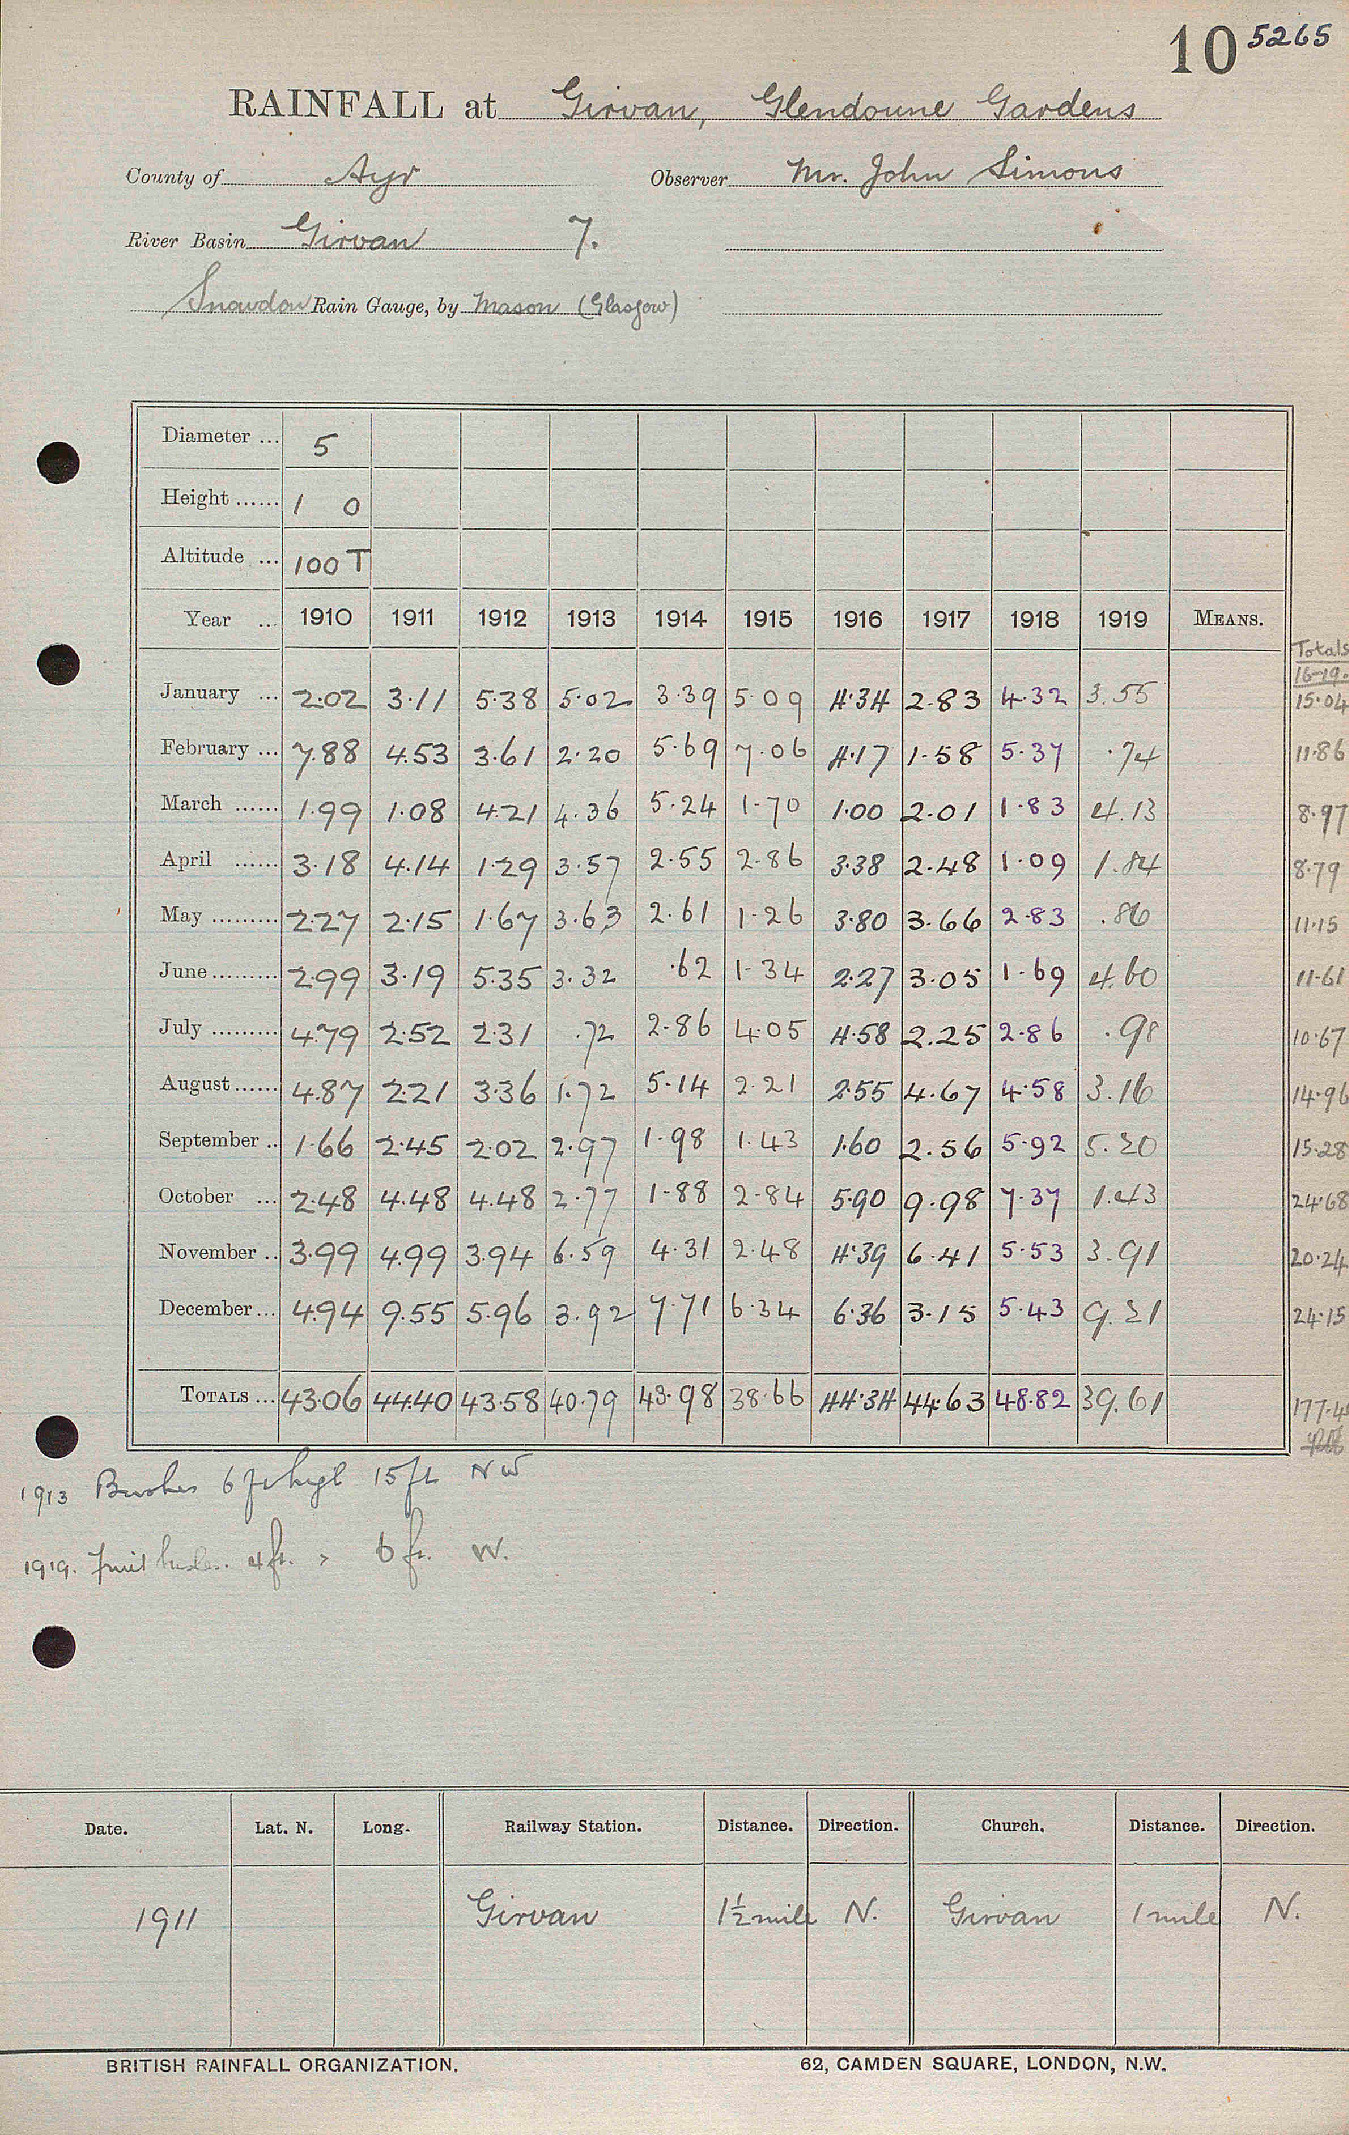 10 5265
RAINFALL at Girvan, Glendoune Gardens
County of Ayr Observer Mr. John Simons
River Basin Girvan 7.
Snowdon Rain Gauge, by Mason (Glasgow)
Diameter ... 5
Height ...... 1 0
Altitude ... 100 T
Year ... 1910 1911 1912 1913 1914 1915 1916 1917 1918 1919 MEANS.
Totals
16-19.
January ... 2.02 3.11 5.38 5.02 3.39 5.09 4.34 2.83 4.32 3.55 15.04
February ... 7.88 4.53 3.61 2.20 5.69 7.06 4.17 1.58 5.37 .74 11.86
March ...... 1.99 1.08 4.21 4.36 5.24 1.70 1.00 2.01 1.83 4.13 8.97
April ...... 3.18 4.14 1.29 3.57 2.55 2.86 3.38 2.48 1.09 1.84 8.79
May ......... 2.27 2.15 1.67 3.63 2.61 1.26 3.80 3.66 2.83 .86 11.15
June ......... 2.99 3.19 5.35 3.32 .62 1.34 2.27 3.05 1.69 4.60 11.61
July ......... 4.79 2.52 2.31 .72 2.86 4.05 4.58 2.25 2.86 .98 10.67
August ...... 4.87 2.21 3.36 1.72 5.14 2.21 2.55 4.67 4.58 3.16 14.96
September .. 1.66 2.45 2.02 2.97 1.98 1.43 1.60 2.56 5.92 5.20 15.28
October ... 2.48 4.48 4.48 2.77 1.88 2.84 5.90 9.98 7.37 1.43 24.68
November .. 3.99 4.99 3.94 6.59 4.31 2.48 4.39 6.41 5.53 3.91 20.24
December ... 4.94 9.55 5.96 3.92 7.71 6.34 6.36 3.15 5.43 9.21 24.15
TOTALS ... 43.06 44.40 43.58 40.79 43.98 38.66 44.34 44.63 48.82 39.61 177.4
1913 Bushes 6 ft high 15 ft NW
1919. Fruit 4 ft. 6 ft. W.
Date. Lat. N. Long. Railway Station. Distance. Direction. Church. Distance. Direction.
1911 Girvan 1½ mile N. Girvan 1 mile N.
BRITISH RAINFALL ORGANIZATION. 62, CAMDEN SQUARE, LONDON, N.W.